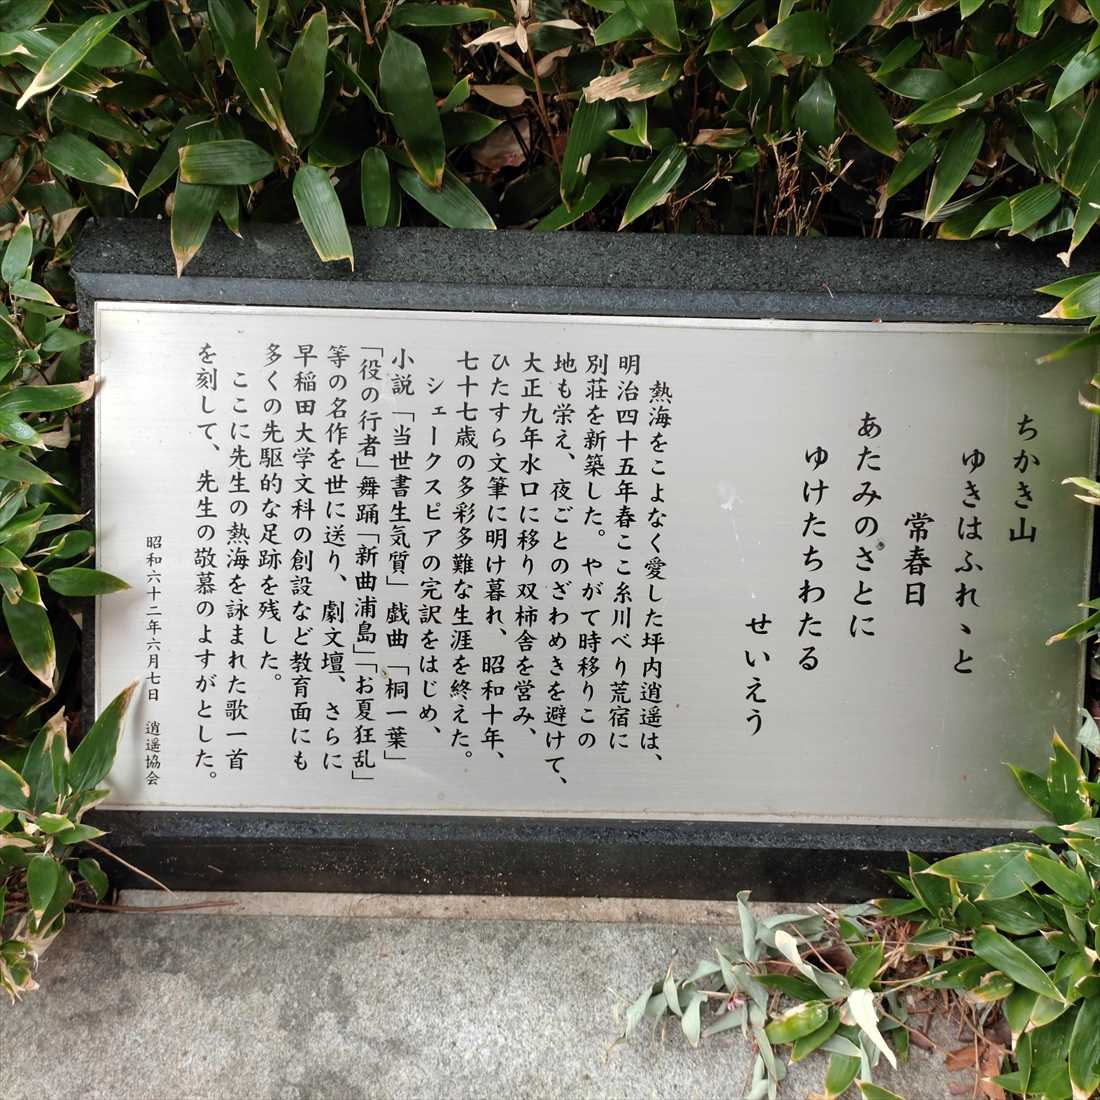 ちかき山
ゆきはふれゝと
常春日
あたみのさとに
ゆけたちわたる
せいえう
熱海をこよなく愛した坪内逍遥は、
明治四十五年春ここ糸川べり荒宿に
別荘を新築した。やがて時移りこの
地も栄え、夜ごとのざわめきを避けて、
大正九年水口に移り双柿舎を営み、
ひたすら文筆に明け暮れ、昭和十年、
七十七歳の多彩多難な生涯を終えた。
シェークスピアの完訳をはじめ、
小説「当世書生気質」戯曲「桐一葉」
「役の行者」舞踊「新曲浦島」「お夏狂乱」
等の名作を世に送り、劇文壇、さらに
早稲田大学文科の創設など教育面にも
多くの先駆的な足跡を残した。
ここに先生の熱海を詠まれた歌一首
を刻して、先生の敬慕のよすがとした。
昭和六十二年六月七日 逍遥協会